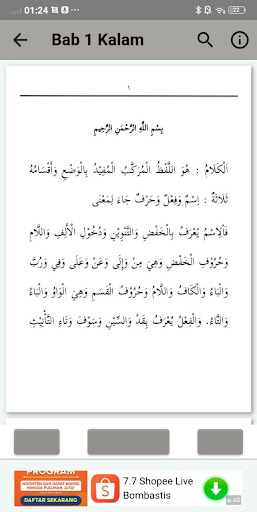 01:24
22
Bab 1 Kalam
١
بِسْمِ اللَّهِ الرَّحْمَنِ الرَّحِيمِ
اَلْكَلَامُ : هُوَ اللَّفْظُ الْمُرَكَّبُ الْمُفِيْدُ بِالْوَضْعِ وَأَقْسَامُهُ
ثَلَاثَةٌ : اِسْمٌ وَفِعْلٌ وَحَرْفٌ جَاءَ لِمَعْنَى
فَاْلاِسْمُ يُعْرَفُ بِالْخَفْضِ وَالتَّنْوِيْنِ وَدُخُوْلِ اْلأَلِفِ وَاللَّامِ
وَحُرُوْفِ الْخَفْضِ وَهِيَ مِنْ وَإِلَى وَعَنْ وَعَلَى وَفِي وَرُبَّ
وَالْبَاءُ وَالْكَافُ وَاللَّامُ وَحُرُوْفُ الْقَسَمِ وَهِيَ الْوَاوُ وَالْبَاءُ
وَالتَّاءُ. وَالْفِعْلُ يُعْرَفُ بِقَدْ وَالسِّيْنِ وَسَوْفَ وَتَاءِ التَّأْنِيْثِ
PROGRAM
DAFTAR SEKARANG
7.7 Shopee Live
Bombastis
Ad